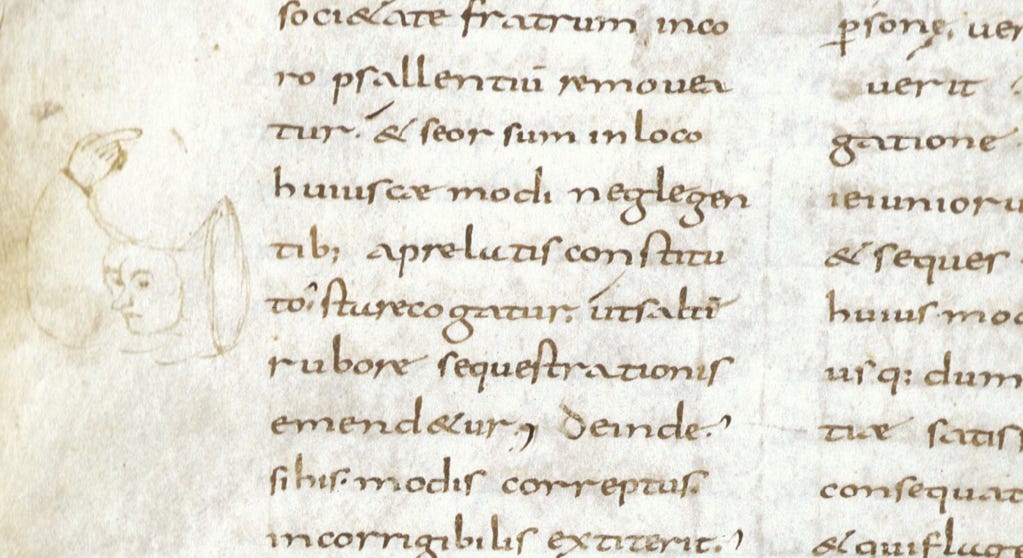 soci&ate fratrum inco
ro psallentiū remouea
tur. & seorsum inloco
huiuscæmodi neglegen
tib; aprelatis constitu
to stare cogatur. utsaltī
rubore sequestrationis
emend&ur; Deinde.
si his. modis correptus.
incorrigibilis extiterit.
p̲sonę. uer
uerit
gatione
ieiunioru
& seques
huius mod
usq; dum
tiæ satisf
consequat
& qui flag